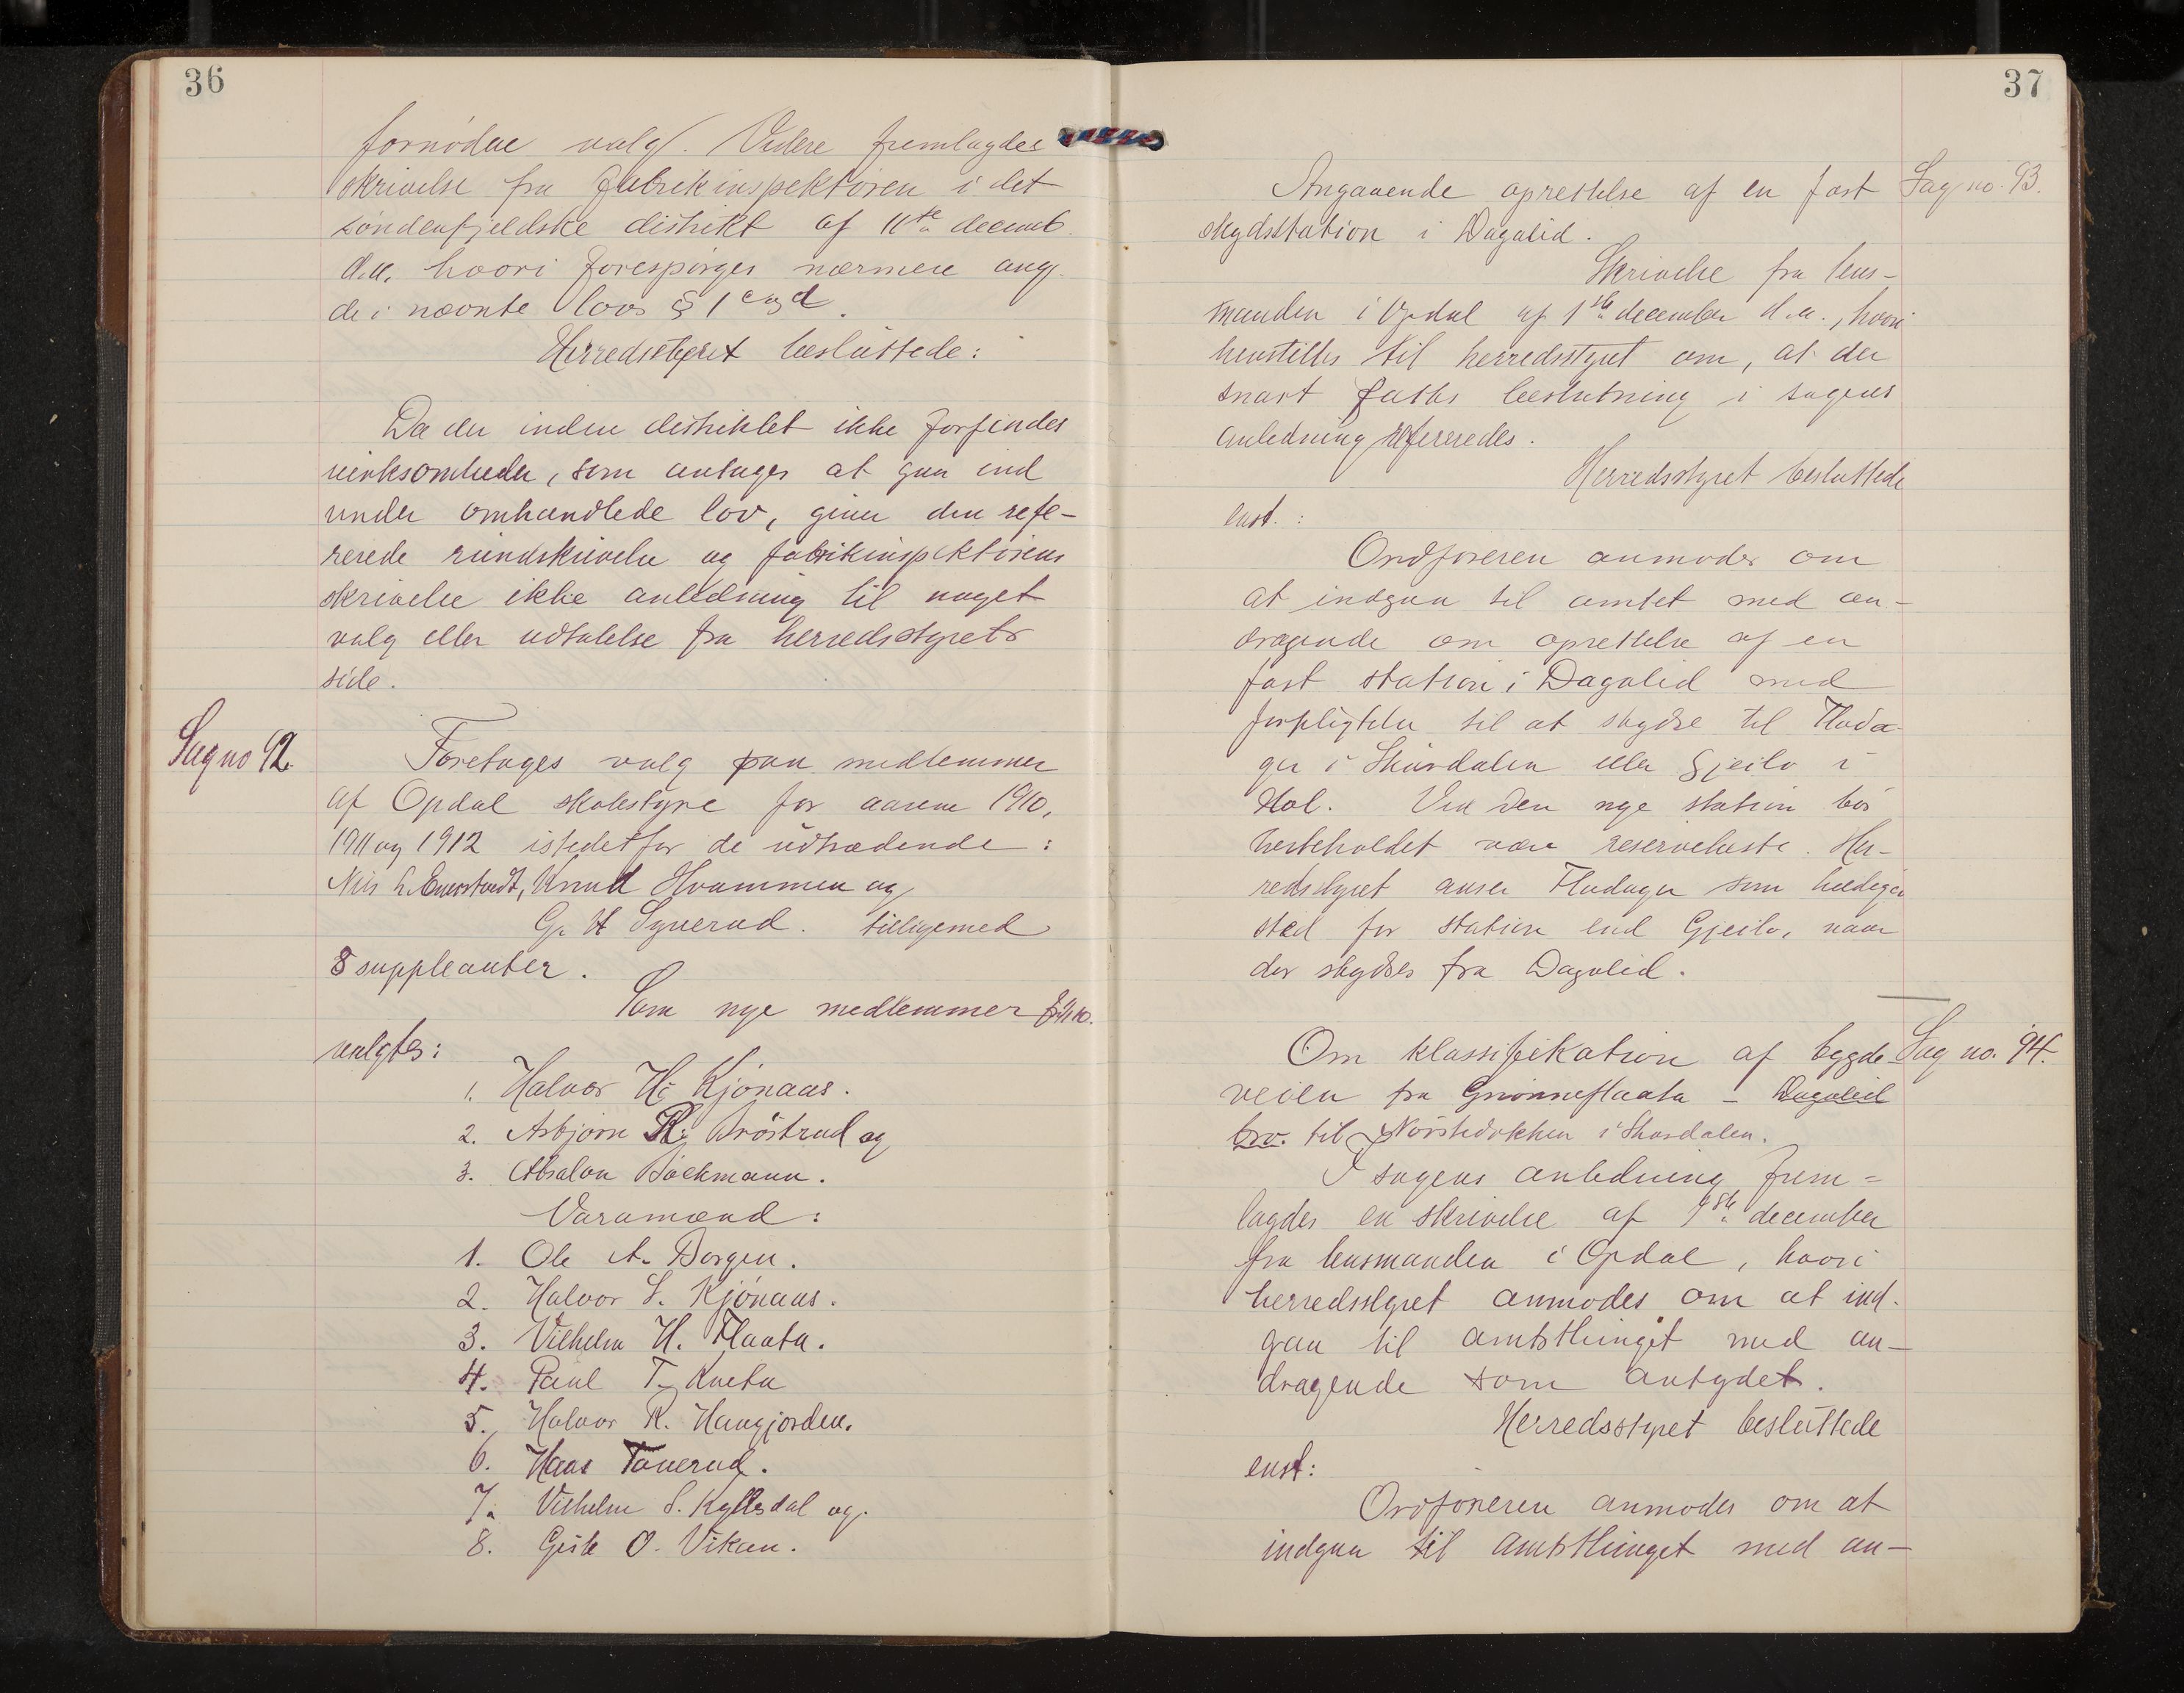 36
fornødne valg. Videre fremlagdes
skrivelse fra fabrikinspektøren i det
søndenfjeldske distrikt af 11te decemb.
d.a. hvori forespørges nærmere ang.
de i nævnte lovs § 1 c og d.
Herredsstyret besluttede:
Da der inden distriktet ikke forfindes
virksomheder, som antages at gaa ind
under omhandlede lov, giver den refe-
rerede rundskrivelse og fabrikinspektørens
skrivelse ikke anledning til noget
valg eller udtalelse fra herredsstyrets
side.
Sag no 92.
Foretages valg paa medlemmer
af Opdal skolestyre for aarene 1910,
1911 og 1912 istedetfor de udtrædende:
Nils L. Enerstvedt, Knud Hvammen og
G. H Synerud. tilligemed
8 suppleanter.
Som nye medlemmer
valgtes:
1. Halvor H. Kjønaas.
2. Asbjørn Brøstrud og
3. Absalon Bøckmann.
Varamænd:
1. Ole A. Borgen.
2. Halvor S. Kjønaas.
3. Vilhelm H. Flaata.
4. Paul T. Kneta
5. Halvor R. Haugjorden.
6. Hans Tanerud.
7. Vilhelm S. Kyllesdal og.
8. O. Vikan.
37
Angaaende oprettelse af en fast Sag no. 93.
skydsstation i Dagalid.
Skrivelse fra lens-
manden i Opdal af 1ste december d.a., hvori
henstilles til herredsstyret om, at der
snart fattes beslutning i sagens
anledning refereredes.
Herredsstyret besluttede
enst.:
Ordføreren anmodes om
at indgaa til amtet med an-
dragende om oprettelse af en
fast station i Dagalid med
forpligtelse til at skydse til Flada-
ger i Skurdalen eller Gjeilo i
Hol. Ved den nye station bør
hesteholdet være reserveheste. Her-
redsstyret anser Fladager som heldiger
sted for station end Gjeilo, naar
der skydses fra Dagalid.
Om klassifikation af bygde- Sag no. 94.
veien fra Grønneflaata - Dagalid
bro. til Nørstedokken i Skurdalen.
I sagens anledning frem-
lagdes en skrivelse af 1ste december
fra lensmanden i Opdal, hvori
herredsstyret anmodes om at ind-
gaa til amtsthinget med an-
dragende som antydet.
Herredsstyret besluttede
enst:
Ordføreren anmodes om at
indgaa til amtsthinget med an-